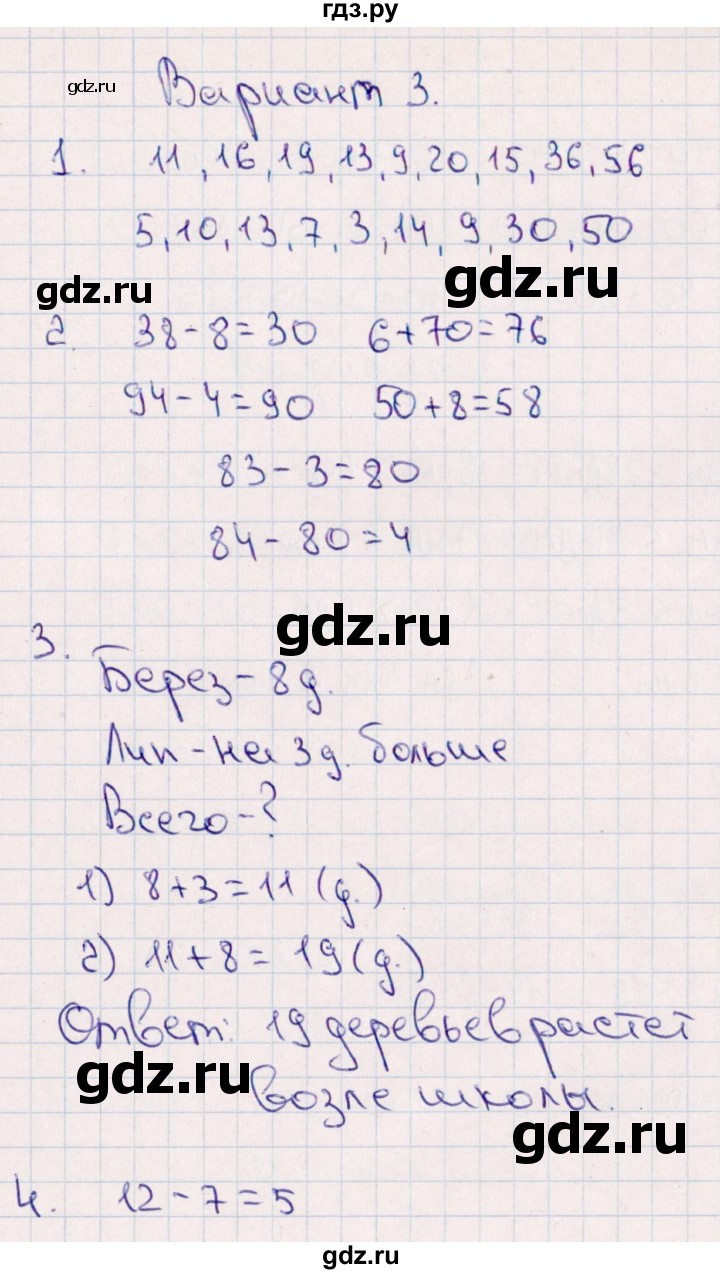 гдз.ру
gdz.ru
Вариант 3.
1. 11, 16, 19, 13, 9, 20, 15, 36, 56
5, 10, 13, 7, 3, 14, 9, 30, 50
gdz.ru
gdz.ru
2. 38-8=30 6+70=76
94-4=90 50+8=58
83-3=80
84-80=4
gdz.ru
3.
Берез-8д.
Лип-на 3д. больше
Всего-?
1) 8+3=11 (д.)
2) 11+8=19(д.)
Ответ: 19 деревьев растет
gdz.ru
возле школы.
gdz.ru
4. 12-7=5
gdz.ru